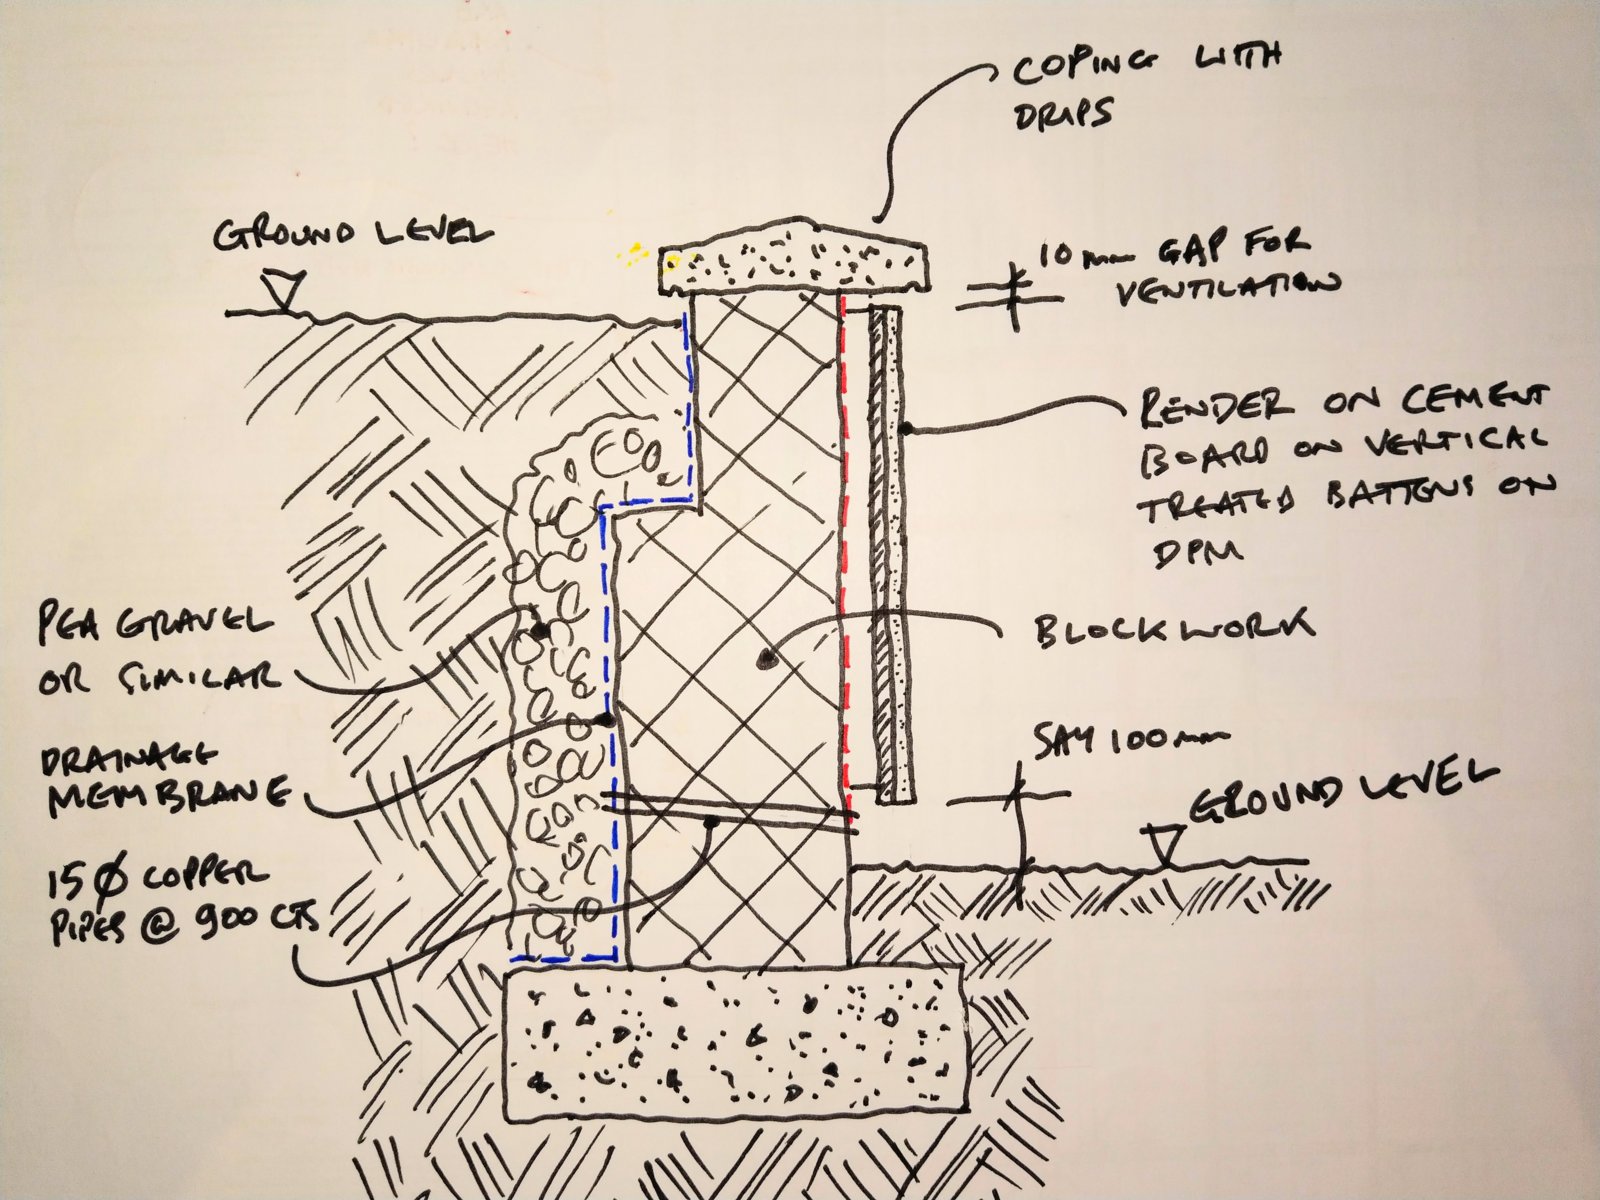 COPING WITH
DRIPS
GROUND LEVEL
10mm GAP FOR
VENTILATION
RENDER ON CEMENT
BOARD ON VERTICAL
TREATED BATTENS ON
DPM
PEA GRAVEL
OR SIMILAR
BLOCKWORK
SAY 100mm
GROUND LEVEL
DRAINAGE
MEMBRANE
15Ø COPPER
PIPES @ 900 CTS